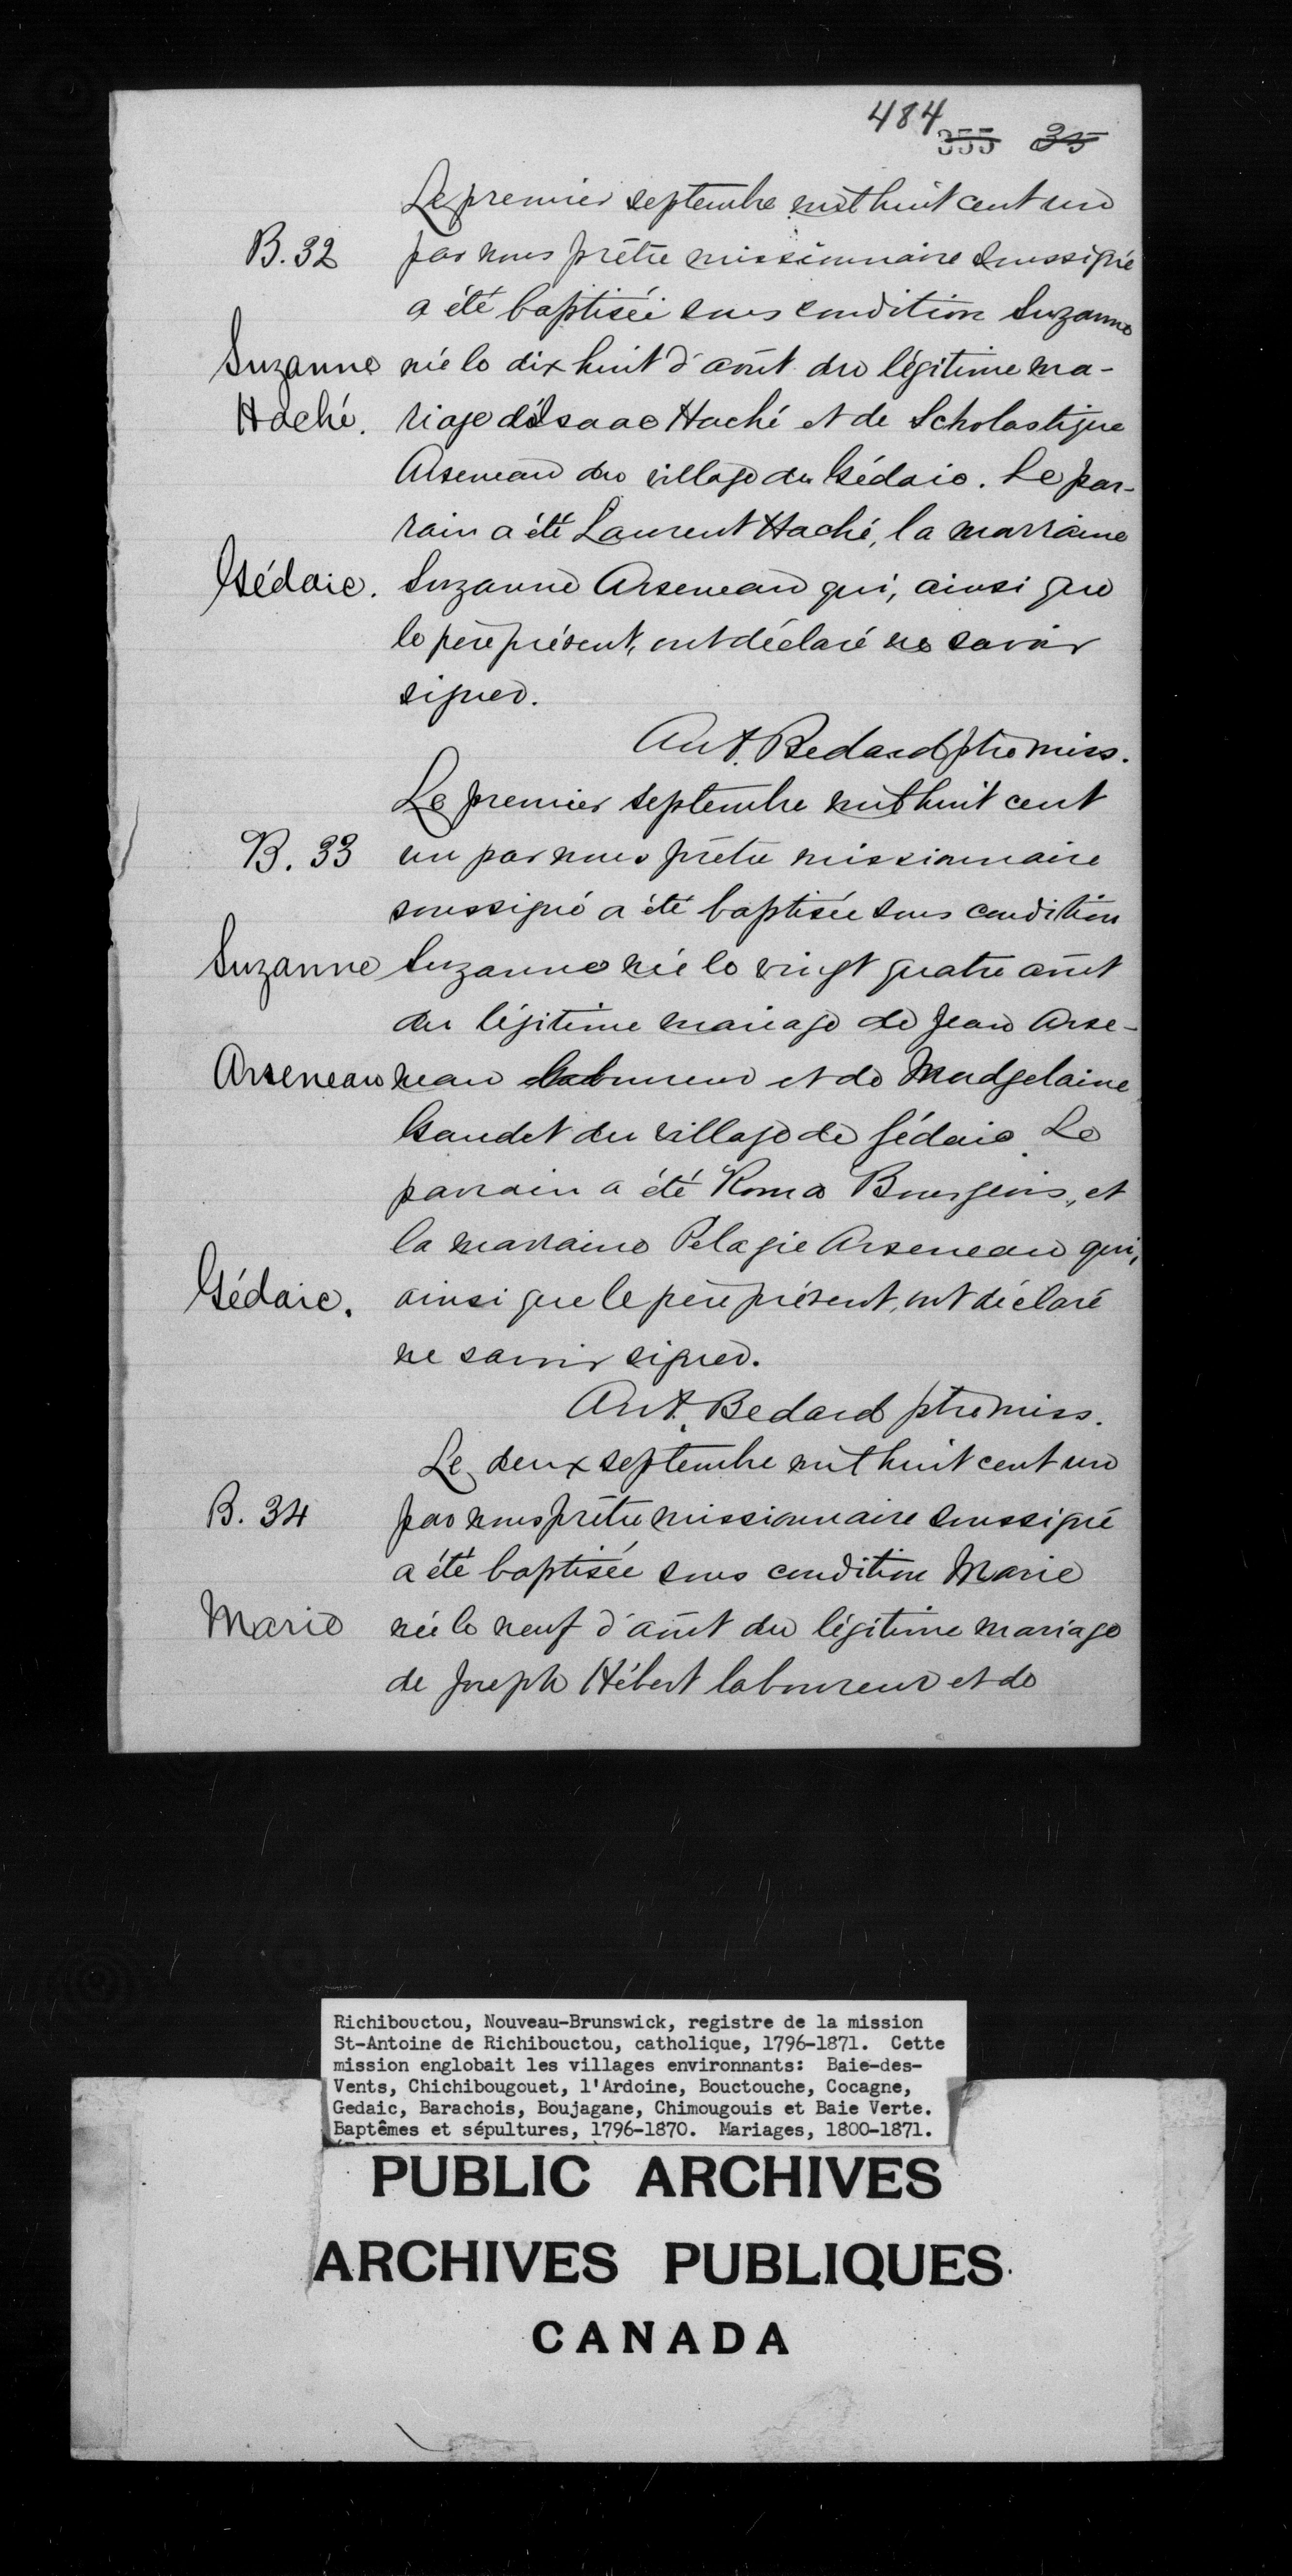 484
355 35
Le premier septembre mil huit cent un
B. 32 par nous prêtre missionnaire soussigné
a été baptisée sous condition Suzanne
Suzanne née le dix huit d'août du légitime ma-
Haché. riage d'Isaac Haché et de Scholastique
Arseneau du village de Gédaic. Le par-
rain a été Laurent Haché, la marraine
Gédaic. Suzanne Arseneau qui, ainsi que
le père présent, ont déclaré ne savoir
signer.
Ant. Bedard ptre miss.
Le premier septembre mil huit cent
B. 33 un par nous prêtre missionnaire
soussigné a été baptisée sous condition
Suzanne Suzanne née le vingt quatre août
du légitime mariage de Jean Arse-
Arseneau neau laboureur et de Madgelaine
Gaudet du village de Gédaic. Le
parrain a été Roma Bourgeois, et
la marraine Pelagie Arseneau qui,
Gédaic. ainsi que le père présent, ont déclaré
ne savoir signer.
Ant. Bedard ptre miss.
Le deux septembre mil huit cent un
B. 34 par nous prêtre missionnaire soussigné
a été baptisée sous condition Marie
Marie née le neuf d'août du légitime mariage
de Joseph Hébert laboureur et de
Richibouctou, Nouveau-Brunswick, registre de la mission
St-Antoine de Richibouctou, catholique, 1796-1871. Cette
mission englobait les villages environnants: Baie-des-
Vents, Chichibougouet, l'Ardoine, Bouctouche, Cocagne,
Gedaic, Barachois, Boujagane, Chimougouis et Baie Verte.
Baptêmes et sépultures, 1796-1870. Mariages, 1800-1871.
PUBLIC ARCHIVES
ARCHIVES PUBLIQUES
CANADA